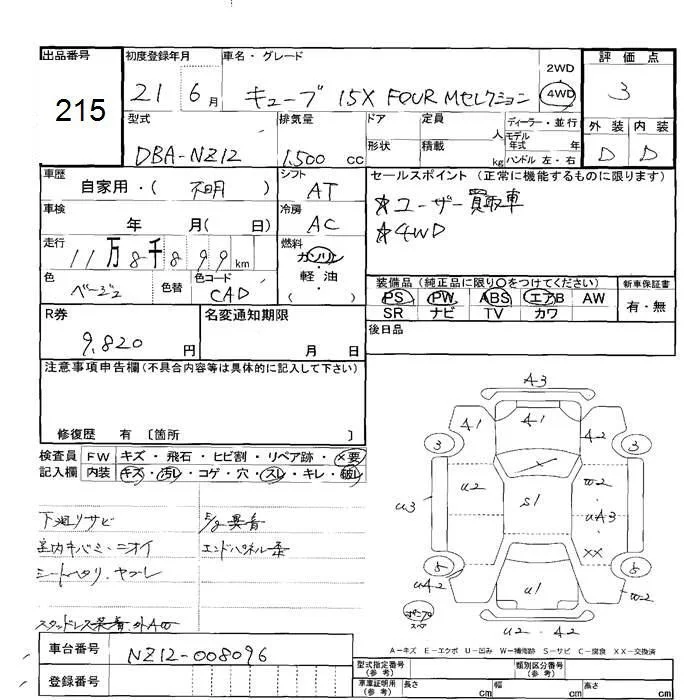 出品番号 初度登録年月 車名・グレード 評価点
215
21 6月 キューブ 15X FOUR Mセレクション 2WD 4WD 3
型式 排気量 ドア 定員 人 ディーラー・並行 外装 内装
モデル年式 年
DBA-NZ12 1,500 cc 形状 積載 kg ハンドル 左・右 D D
車歴 自家用・( 不明 ) シフト AT セールスポイント (正常に機能するものに限ります)
☆ユーザー買取車
☆4WD
車検 年 月( 日) 冷房 AC
走行 11万8千899km 燃料 ガソリン・軽油・( )
色 ベージュ 色替 色コード CAD
装備品(純正品に限り○をつけてください) 新車保証書
PS PW ABS エアB AW 有・無
SR ナビ TV カワ
R券 9,820円 名変通知期限 月 日
後日品
注意事項申告欄(不具合内容等は具体的に記入して下さい)
修復歴 有 〔箇所 〕
検査員記入欄 FW キズ・飛石・ヒビ割・リペア跡・×要
内装 キズ・汚レ・コゲ・穴・スレ・キレ・破レ
下廻リサビ E/g異音
室内キバミ・ニオイ エンドパネル
シートヘタリ・ヤブレ
スタッドレス
A3
A1 A1 A2
3 3
U3 U2 S1 W2 UA3 XX
5 5
UA2 U1 W2
U2・A2
A−キズ E−エクボ U−凹み W−補修跡 S−サビ C−腐食 XX−交換済
車台番号 NZ12-008096
登録番号
型式指定番号(参考) 類別区分番号(参考)
車庫証明用(参考) 長さ cm 幅 cm 高さ cm